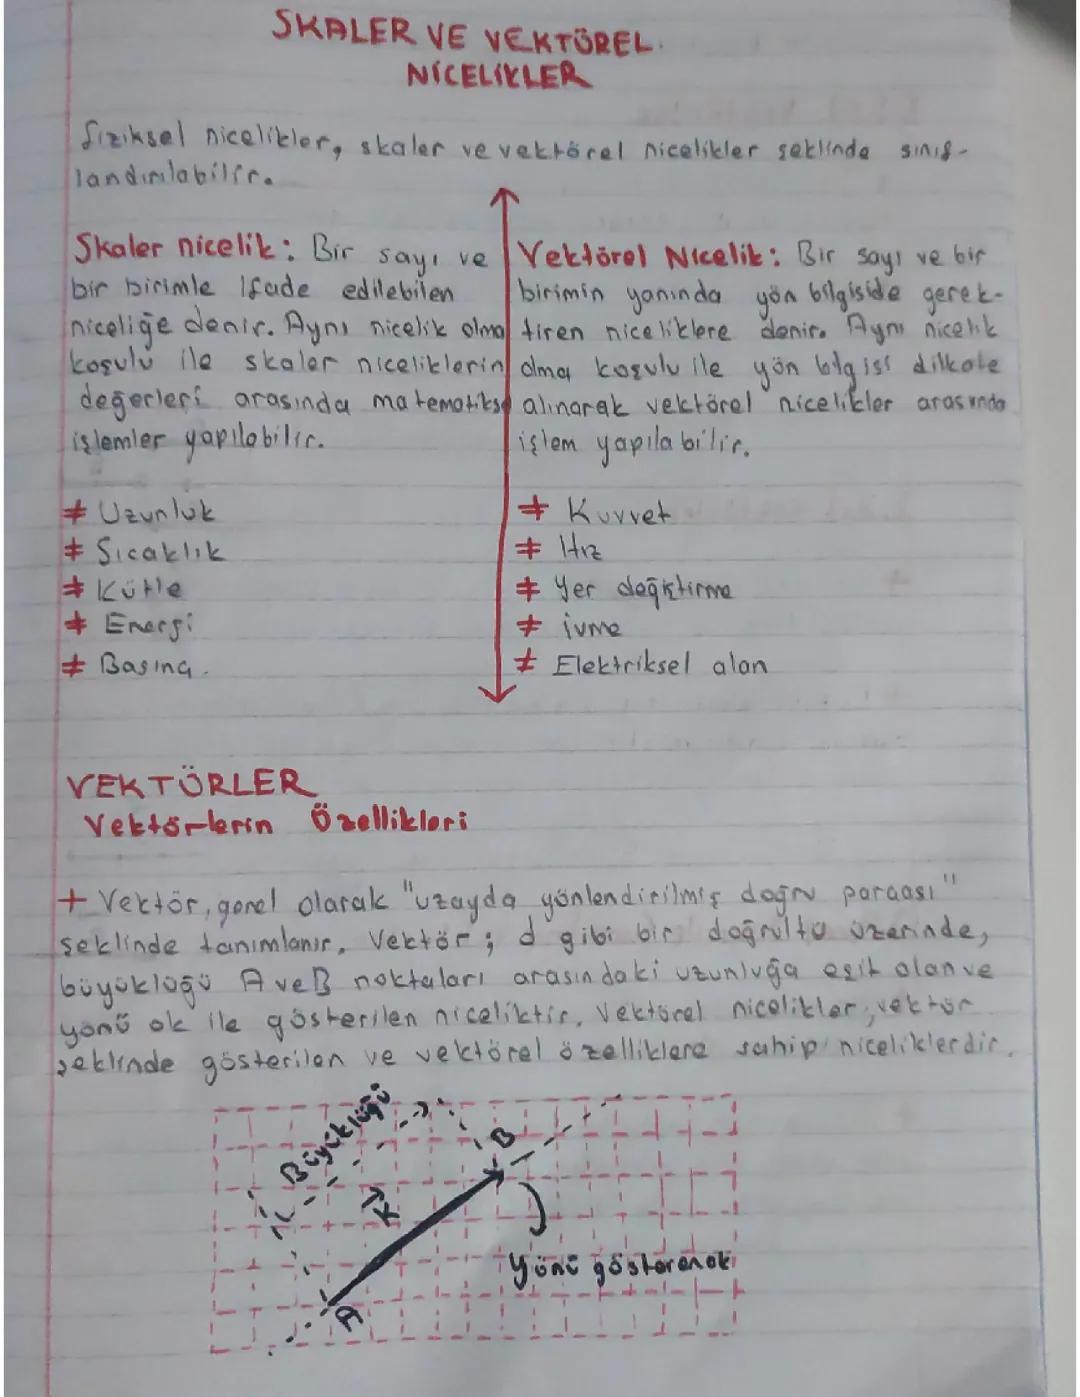 SKALER VE VEKTÖREL
NİCELİKLER
fiziksel nicelikler, skaler ve vektörel nicelikler şeklinde sınıf-
landırılabilir.
Skaler nicelik: Bir sayı ve
bir birimle ifade edilebilen
niceliğe denir. Aynı nicelik olma
koşulu ile skaler niceliklerin
değerleri arasında matematikse
işlemler yapılabilir.
≠ Uzunluk
≠ Sıcaklık
≠ Kütle
≠ Enerji
≠ Basınç.
Vektörel Nicelik: Bir sayı ve bir
birimin yanında yön bilgiside gerek-
tiren niceliklere denir. Aynı nicelik
olma koşulu ile yön bilgisi dilkate
alınarak vektörel nicelikler arasında
işlem yapılabilir.
≠ Kuvvet
≠ Hız
≠ Yer değiştirme
≠ ivme
≠ Elektriksel alan
VEKTÜRLER
Vektörlerin Özellikleri
+ Vektör, genel olarak "uzayda yönlendirilmiş doğru parçası"
şeklinde tanımlanır. Vektör; d gibi bir doğrultu üzerinde,
büyüklüğü A ve B noktaları arasındaki uzunluğa eşit olan ve
yönü ok ile gösterilen niceliktir. Vektörel nicelikler; vektör
şeklinde gösterilen ve vektörel özelliklere sahip niceliklerdir.
Büyüklüğü
B
K
Yönü gösteren ok
A